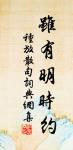 雖有明時約
種放散句詞典網集